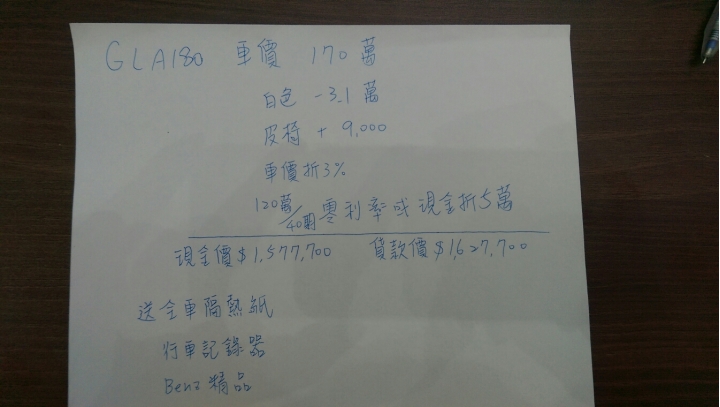 GLA180 車價 170萬
白色 -3.1萬
皮椅 + 9,000
車價折3%
120萬/40期 零利率或現金折5萬
現金價$1,577,700 貸款價$1,627,700
送全車隔熱紙
行車記錄器
Benz精品